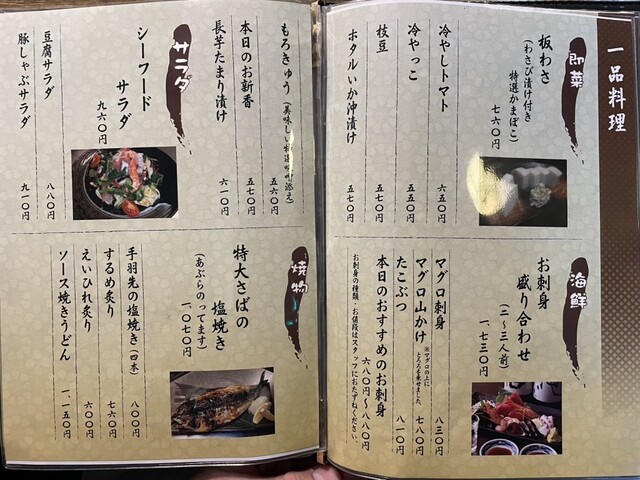 一品料理
即菜
板わさ
(わさび漬け付き
特選かまぼこ)
七六〇円
冷やしトマト
六五〇円
冷やっこ
五七〇円
枝豆
五七〇円
ホタルいか沖漬け
五七〇円
海鮮
お刺身
盛り合わせ
(二〜三人前)
一、七三〇円
マグロ刺身
八三〇円
マグロ山かけ
※マグロの上に
とろろを乗せました。
七八〇円
たこぶつ
八一〇円
本日のおすすめのお刺身
六八〇円〜八八〇円
お刺身の種類・お値段はスタッフにおたずねください。
もろきゅう
(美味しい特選味噌添え)
五六〇円
本日のお新香
五七〇円
長芋たまり漬け
六一〇円
サラダ
シーフード
サラダ
九六〇円
豆腐サラダ
八八〇円
豚しゃぶサラダ
九一〇円
焼物
特大さばの
塩焼き
(あぶらのってます)
一、〇七〇円
手羽先の塩焼き(四本)
八〇〇円
するめ炙り
七六〇円
えいひれ炙り
六〇〇円
ソース焼きうどん
一、一五〇円